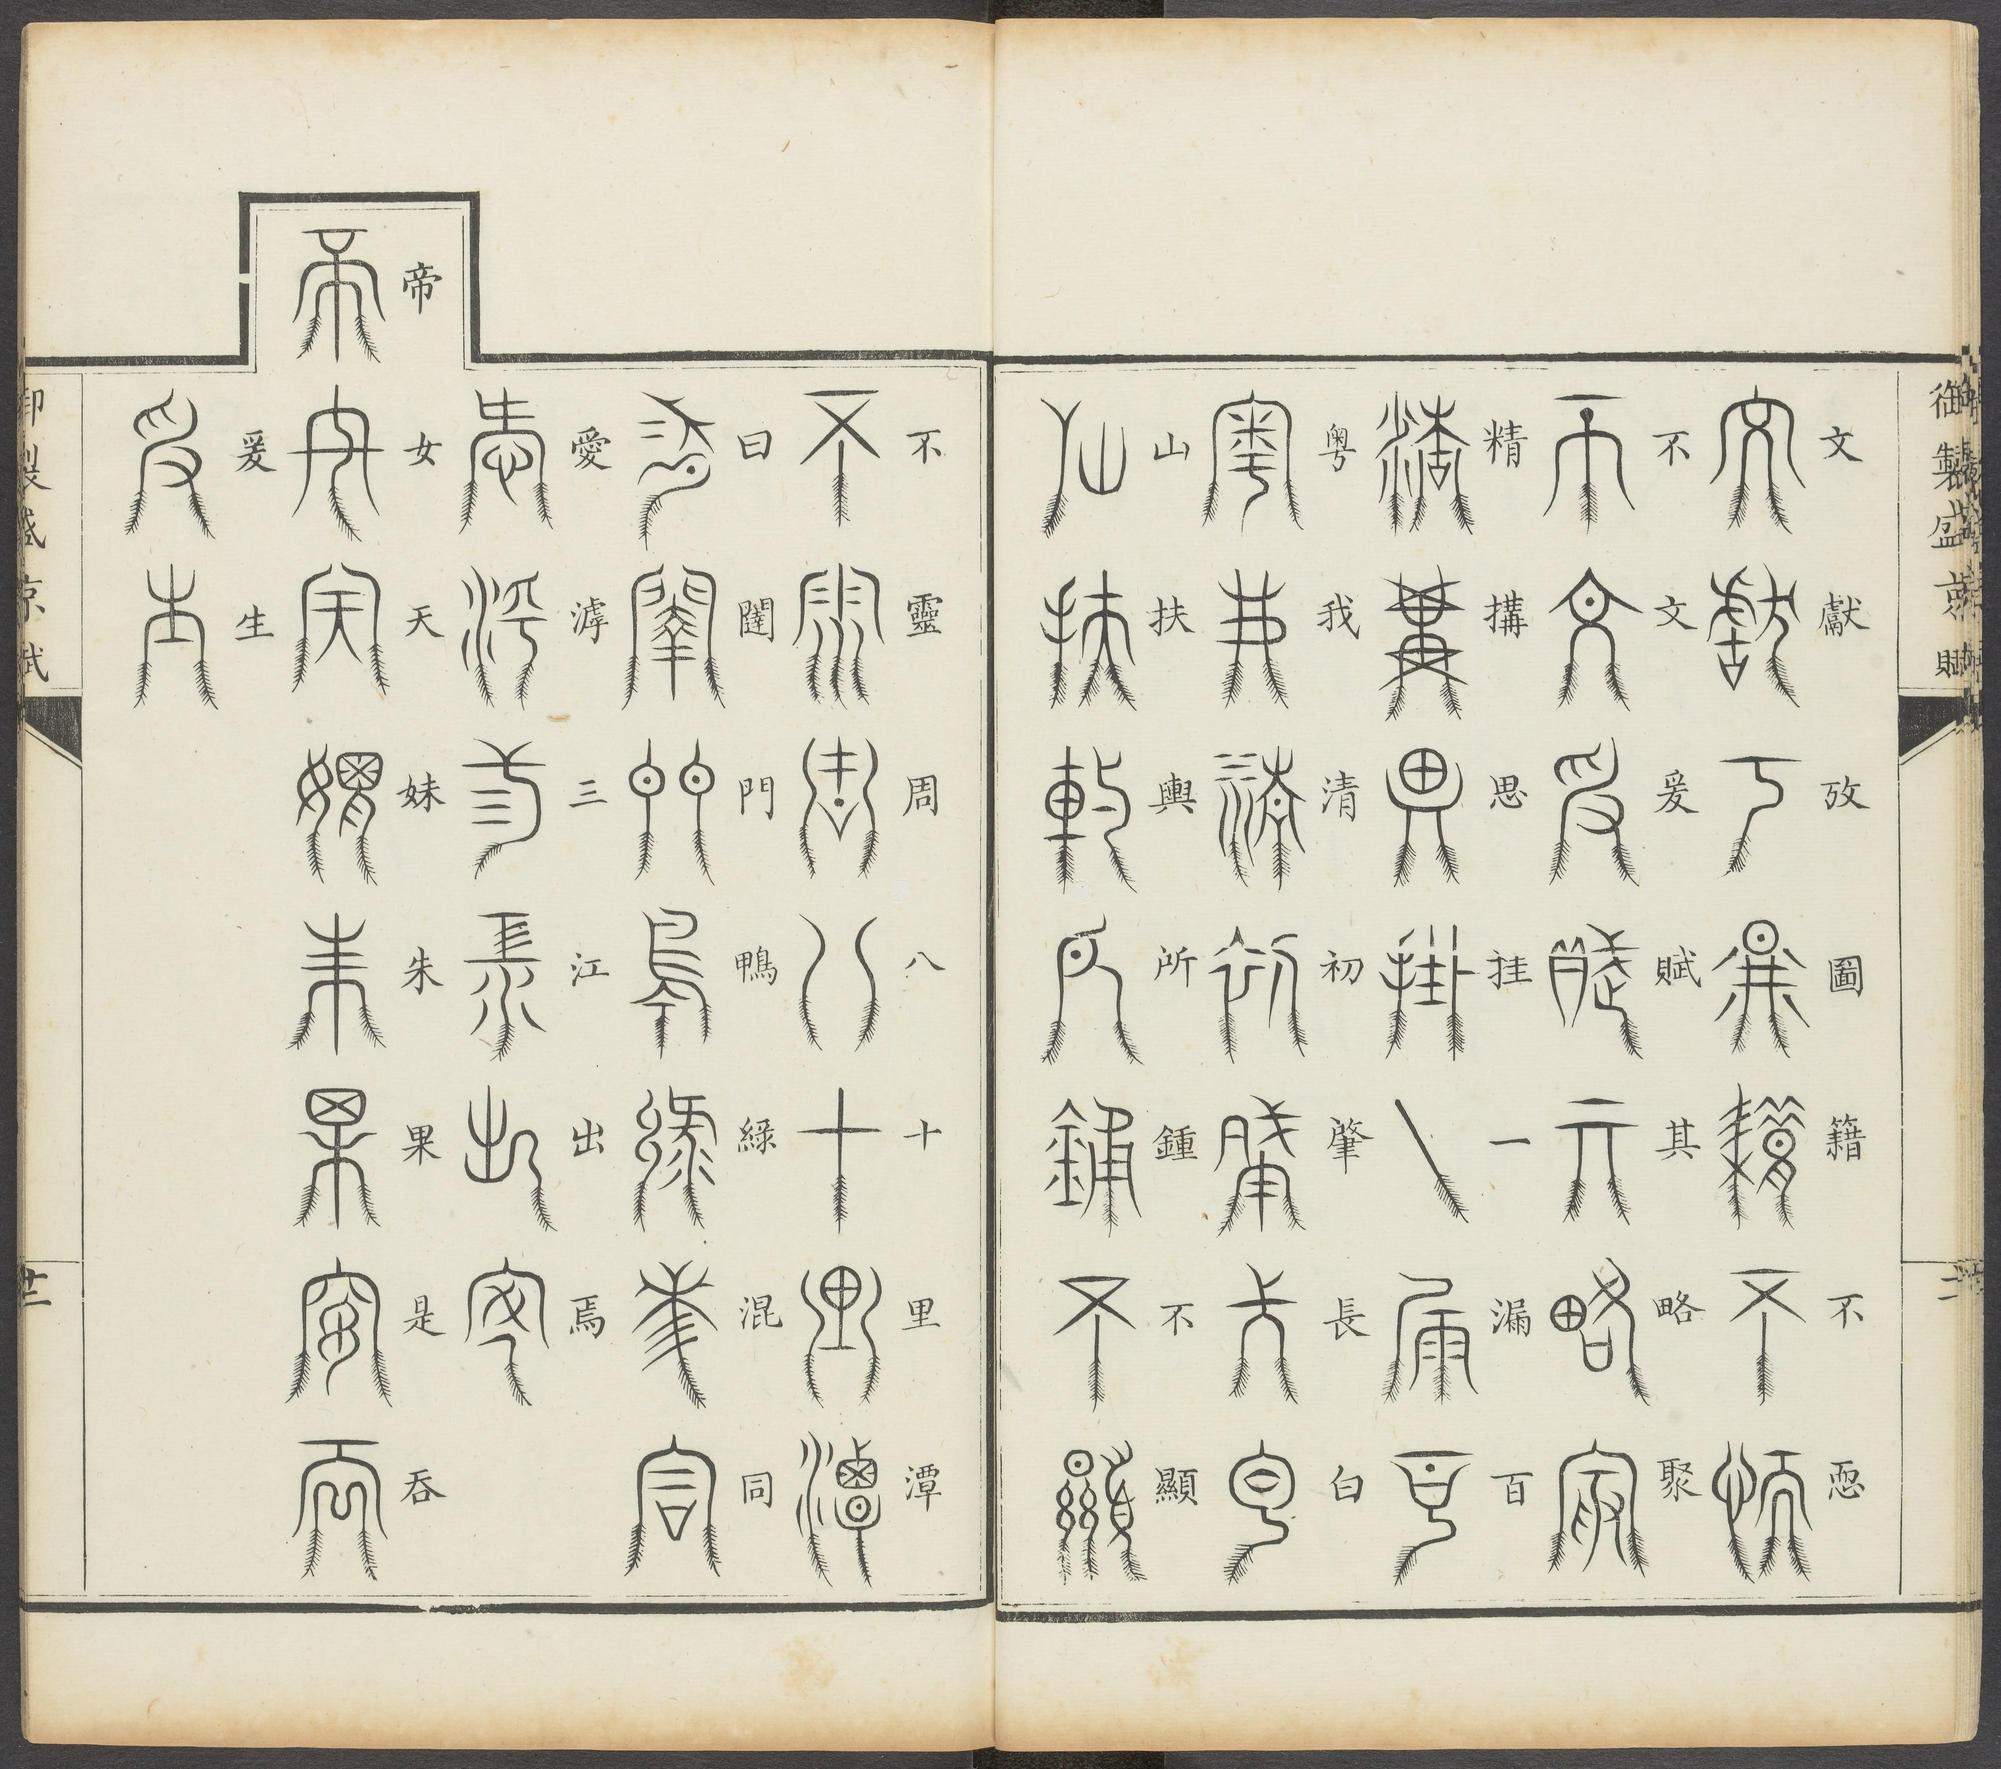 御製盛京賦
文獻攷圖籍不恧
不文爰賦其略聚
精搆思挂一漏百
粵我清初肇長白
山扶輿所鍾不顯
不靈周八十里潭
曰闥門鴨綠混同
愛滹三江出焉
帝女天妹朱果是吞
爰生
御製盛京賦